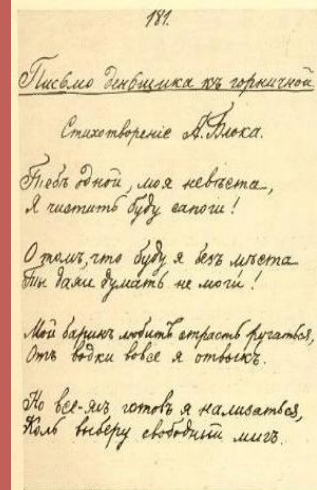 181.
Письмо деньщика къ горничной
Стихотвореніе А. Блока.
Тебѣ одной, моя невѣста,
Я чистить буду сапоги!
О томъ, что буду я безъ мѣста
Ты даже думать не моги!
Мой баринъ любитъ страсть ругаться,
Отъ водки вовсе я отвыкъ.
Но все-жъ готовъ я нализаться,
Коль выберу свободный мигъ.